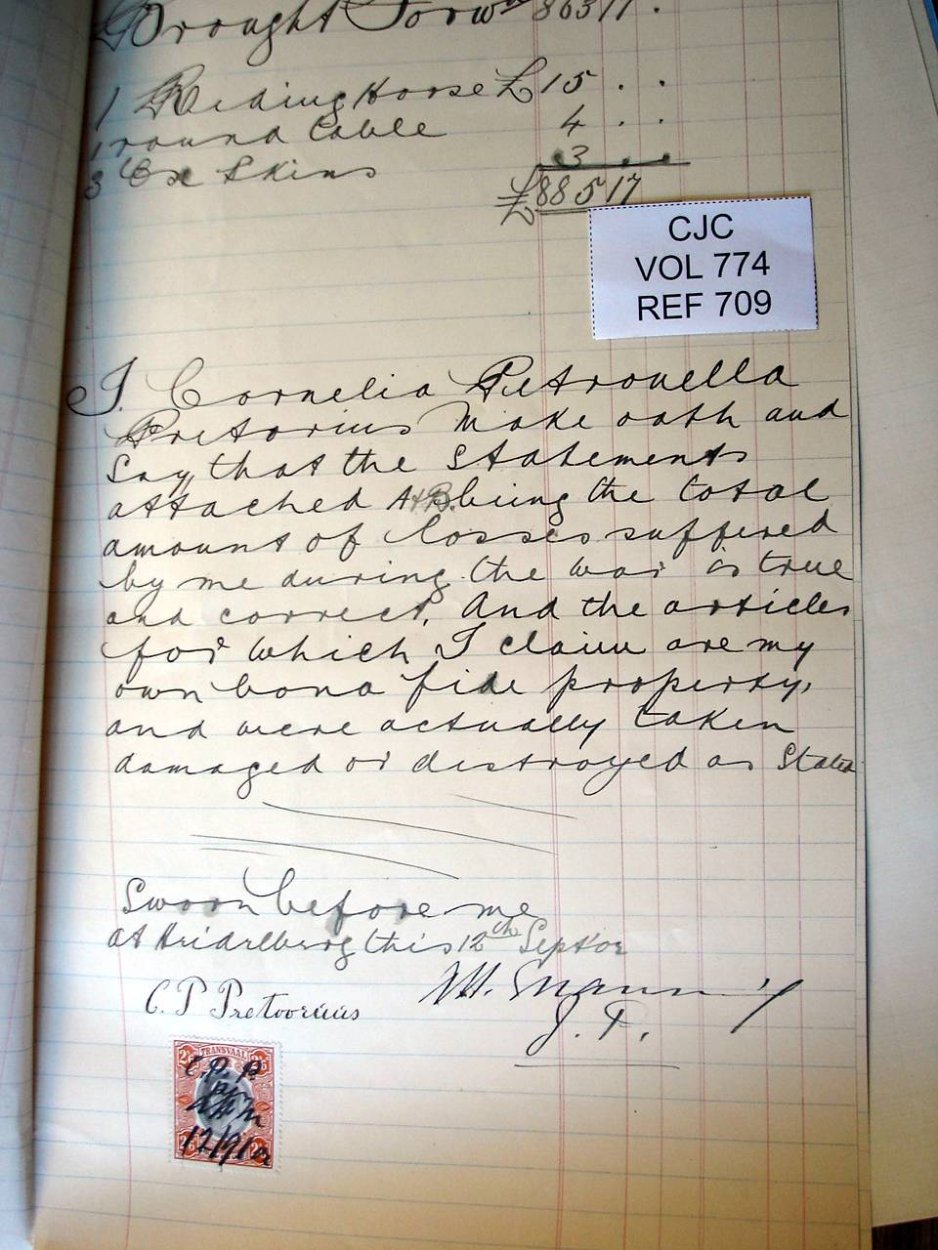 Brought Forwd 863 17 .
1 Riding Horse £ 15 . .
1 round table 4 . .
3 Ox Skins 3 . .
£885 17
CJC
VOL 774
REF 709
I. Cornelia Pietronella
Pretorius Make oath and
Say, that the Statements
attached A+B. being the total
amount of losses suffered
by me during the war is true
and correct. And the articles
for which I claim are my
own bona fide property,
and were actually taken
damaged or destroyed as Stated
Sworn before me
at Heidelberg this 12th Septbr
C. P Pretoorius
J. P.
TRANSVAAL
C.P.P
12/9/02